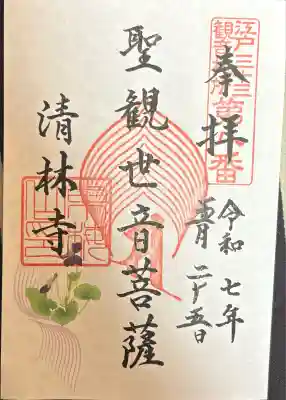 奉拝
江戸三十三
観音札所
第八番
令和七年
五月二十五日
聖観世音菩薩
清林寺